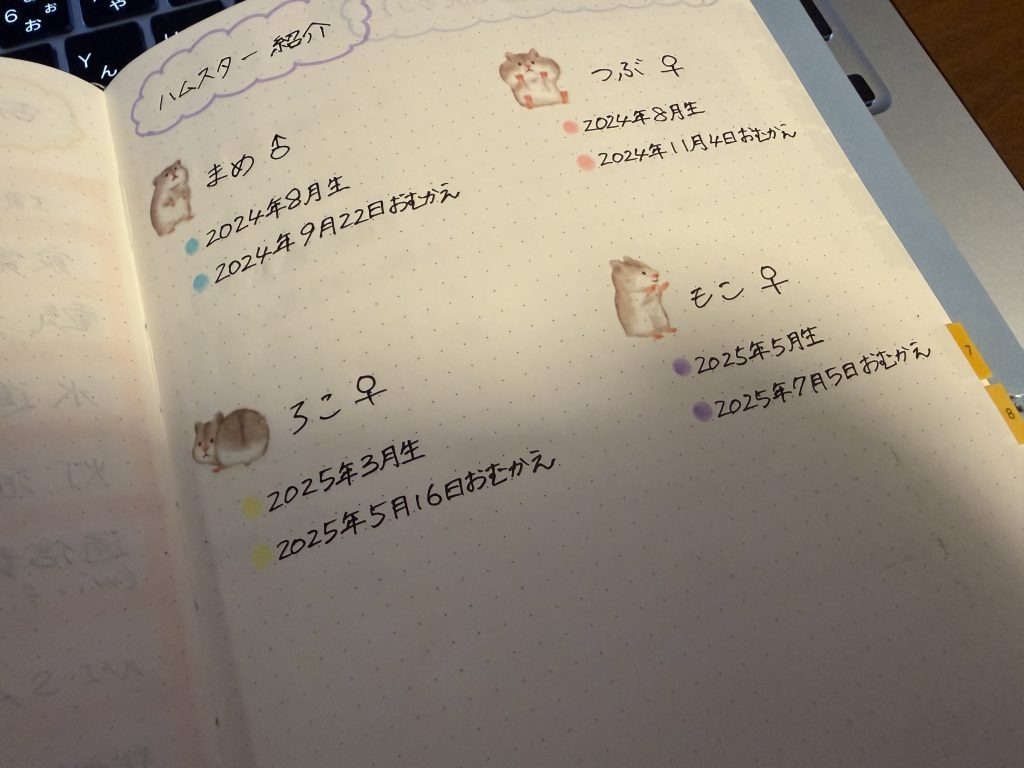 ハムスター 紹介
まめ ♂
2024年8月生
2024年9月22日おむかえ
つぶ ♀
2024年8月生
2024年11月4日おむかえ
ろこ ♀
2025年3月生
2025年5月16日おむかえ
もこ ♀
2025年5月生
2025年7月5日おむかえ
7
8
6
お
ぉ
や
Y
ん